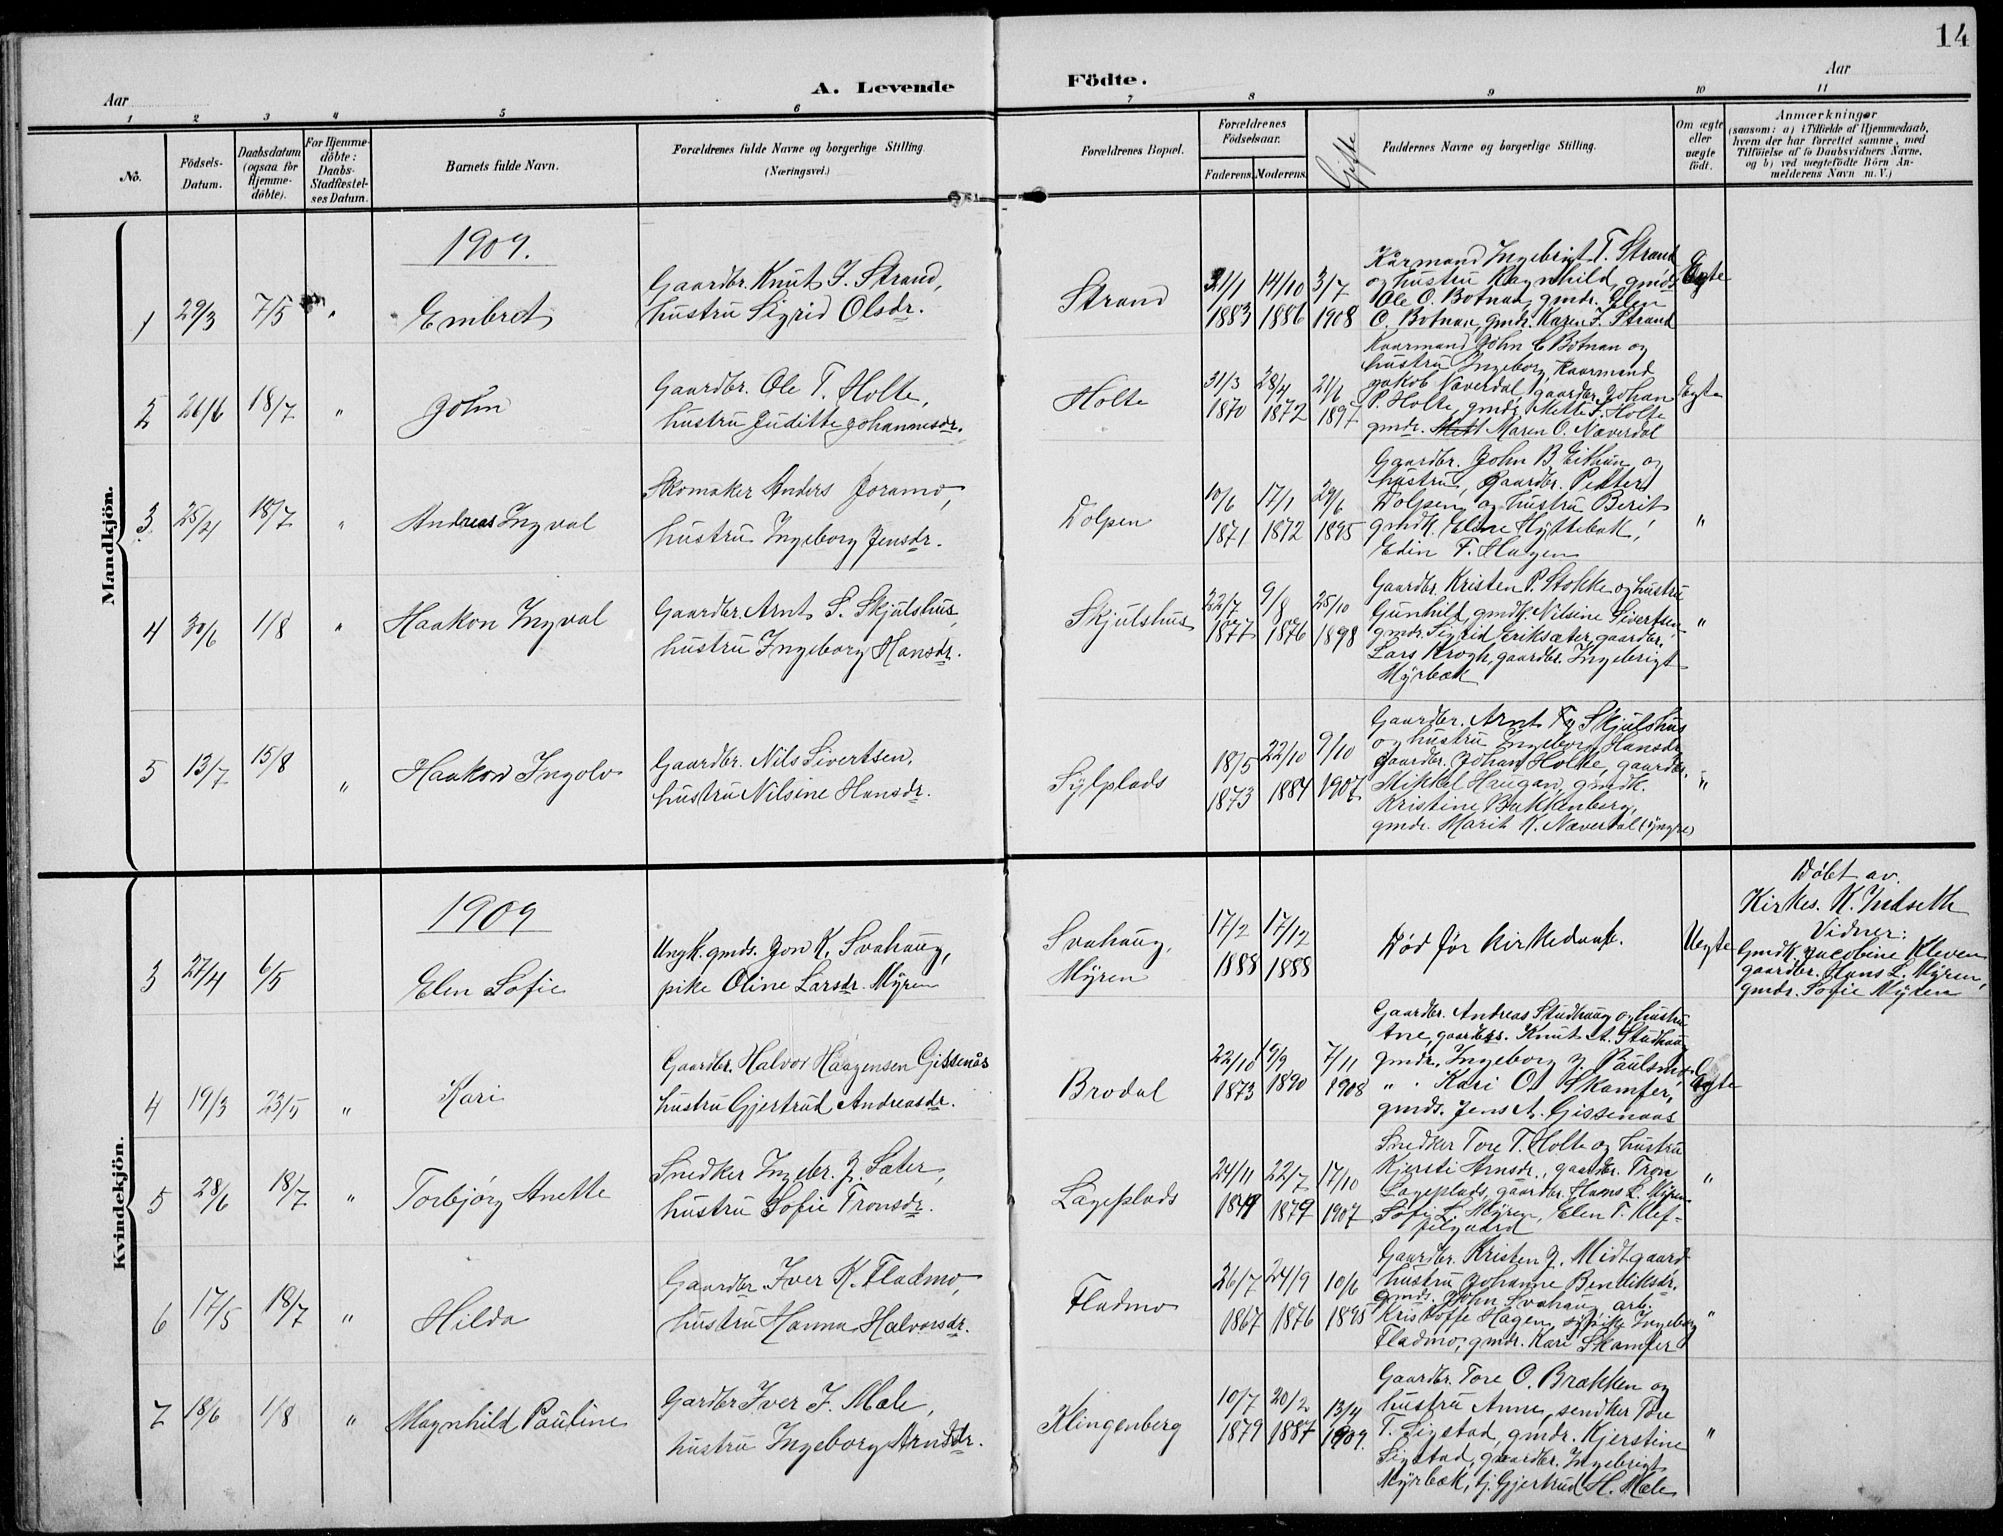 14
Aar
A. Levende Födte.
Aar
1 2 3 4 5 6 7 8 9 10 11
No.
Födsels-
Datum.
Daabsdatum
(ogsaa for
Hjemme-
döbte).
For Hjemme-
döbte:
Daabs-
Stadfæstel-
ses Datum.
Barnets fulde Navn.
Forældrenes fulde Navne og borgerlige Stilling.
(Næringsvei.)
Forældrenes Bopæl.
Forældrenes
Födselsaar.
Faderens. Moderens.
Gifte
Faddernes Navne og borgerlige Stilling.
Om ægte
eller
uægte
født.
Anmærkninger
(saasom: a) i Tilfælde af Hjemmedaab,
hvem der har forrettet samme, med
Tilføielse af to Daabsvidners Navne,
og b) ved uægtefødte Börn An-
melderens Navn m. V.)
Mandkjön.
1909.
1 29/3 7/5 " Embret
Gaardbr. Knut I. Strand,
hustru Sigrid Olsdr.
Strand
31/1 14/10 3/7
1883 1886 1908
Kårmand Ingebrigt T. Strand
og hustru Ragnhild, gmds
Ole O. Botnan, gmdr. Elen
O. Botnan, gmdr. Karen I. Strand
Egte
2 26/6 18/7 " John
Gaardbr. Ole T. Holte,
hustru Juditte Johannesdr.
Holte
31/3 28/4 21/6
1870 1872 1897
Kaarmand John E Botnan og
hustru Ingeborg, Kaarmand
Jakob Næverdal, gaardbr. Johan
P. Holte, gmdr Mette I. Holte
gmdr. Maren O. Næverdal
Egte
3 25/4 18/7 " Andreas Ingval
Skomaker Anders Joramo,
hustru Ingeborg Jensdr.
Dolpen
10/6 17/1 29/6
1871 1872 1895
Gaardbr. John B. Eithun og
hustru, Gaardbr. Petter
Dolpen og hustru Berit
gmdk. Eline Hyttebak,
Edin F. Hagen
"
4 30/6 1/8 " Haakon Ingval
Gaardbr. Arnt S. Skjulshus,
hustru Ingeborg Hansdr.
Skjulshus
22/7 9/8 25/10
1877 1876 1898
Gaardbr. Kristen P. Stokke og hustru
Gunhild, gmdk. Nilsine Sivertsen
gmdr. Sigrid Eriksæter, gaardbr.
Lars Krogh, gaardbr. Ingebrigt
Myrbæk
"
5 13/7 15/8 " Haakon Ingolv
Gaardbr. Nils Sivertsen,
hustru Nilsine Hansdr.
Sylplads
18/5 22/10 9/10
1873 1884 1907
Gaardbr. Arnt Skjulshus
og hustru Ingeborg Hansdr
Gaardbr. Johan Holte, gaardbr.
Mikkel Haugan, gmdk.
Kristine Bakkenberg,
gmdr. Marit K. Næverdal (yngre)
"
Kvindekjön.
1909
3 27/4 6/5 Elen Sofie
Ungk. gmds. Jon K. Svahaug,
pike Oline Larsdr. Myren
Svahaug,
Myren
17/2 17/12
1888 1888
Död før kirkedaab.
Uegte
Döbt av.
Kirkes. K. Indseth
Vidner:
Gmdk. Jacobine Kleven
gaardbr. Hans L. Myren,
gmdr. Sofie Myren
4 19/3 23/5 " Kari
Gaardbr. Halvor Haagensen Gissenås
hustru Gjertrud Andreasdr.
Brodal
22/10 19/9 7/11
1873 1890 1908
Gaardbr. Andreas Studhaug og hustru
Ane, gaardbrs. Knut A. Studhaug
gmdr. Ingeborg J. Paulsmo,
" Kari O. Skamfer,
gmds. Jens A. Gissenaas
Egte
5 28/6 18/7 " Torbjørg Anette
Snedker Ingebr. J. Sæter,
hustru Sofie Tronsdr.
Lageplads
24/11 22/7 17/10
1879 1907
Snedker Tore T. Holte og hustru
Kjersti Arnsdr., gaardbr. Tron
Lageplads, gaardbr. Hans L. Myren
Sofie L. Myren, Elen T. Klef-
filgaard
"
6 17/5 18/7 " Hilda
Gaardbr. Iver K. Fladmo,
hustru Hanna Halvorsdr.
Fladmo
26/7 24/9 10/6
1867 1876 1895
Gaardbr Kristen J. Midtgaard
hustru Johanne Bendiksdr.
gmds. John Svahaug arb.
Kristoffe Hagen, sypike Ingeborg
Fladmo, gmdr. Kari Skamfer
"
7 18/6 1/8 " Magnhild Pauline
Gardbr Iver I. Mæle,
hustru Ingeborg Arntsdr.
Klingenberg
10/7 20/2 13/4
1879 1887 1909.
Gaardbr. Tore O. Brækken og
hustru Anne, sendker Tore
T. Sigstad, gmdr. Kjerstine
Sigstad, gaardbr. Ingebrigt
Myrbæk, tj. Gjertrud H. Mæle
"